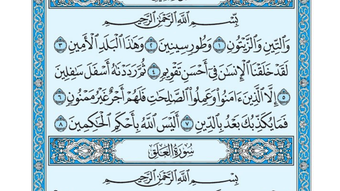 بِسْمِ اللَّهِ الرَّحْمَٰنِ الرَّحِيمِ
وَالتِّينِ وَالزَّيْتُونِ ١ وَطُورِ سِينِينَ ٢ وَهَٰذَا الْبَلَدِ الْأَمِينِ ٣
لَقَدْ خَلَقْنَا الْإِنسَانَ فِي أَحْسَنِ تَقْوِيمٍ ٤ ثُمَّ رَدَدْنَاهُ أَسْفَلَ سَافِلِينَ
٥ إِلَّا الَّذِينَ آمَنُوا وَعَمِلُوا الصَّالِحَاتِ فَلَهُمْ أَجْرٌ غَيْرُ مَمْنُونٍ ٦
فَمَا يُكَذِّبُكَ بَعْدُ بِالدِّينِ ٧ أَلَيْسَ اللَّهُ بِأَحْكَمِ الْحَاكِمِينَ ٨
سُورَةُ الْعَلَقِ
بِسْمِ اللَّهِ الرَّحْمَٰنِ الرَّحِيمِ